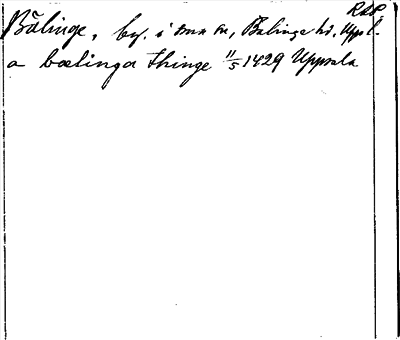 RAP
Bälinge, by. i smn sn, Bälinge hd. Uppl.
a bælinga thinge 11/5 1429 Uppsala